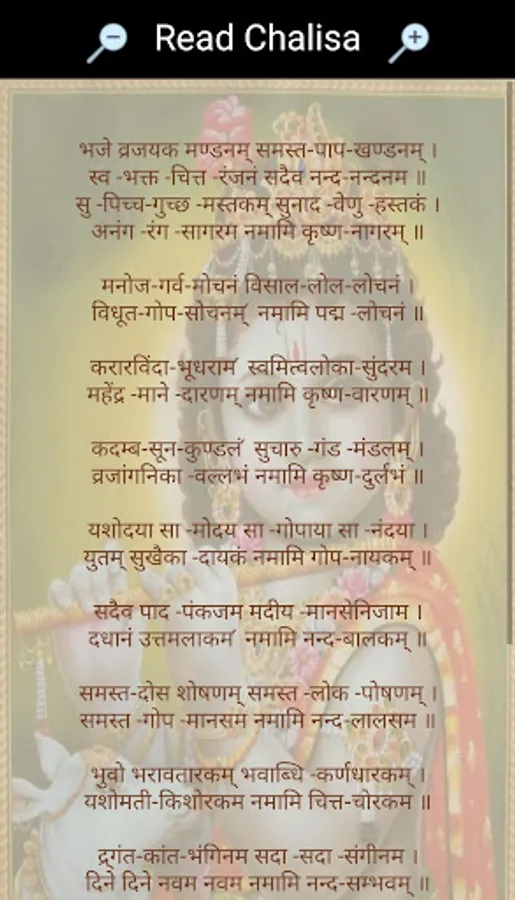 Read Chalisa
भजे व्रजयक मण्डनम् समस्त-पाप-खण्डनम् ।
स्व -भक्त -चित्त -रंजनं सदैव नन्द-नन्दनम ॥
सु -पिच्च-गुच्छ -मस्तकम् सुनाद -वैणु -हस्तकं ।
अनंग -रंग -सागरम नमामि कृष्ण-नागरम् ॥
मनोज-गर्व-मोचनं विसाल-लोल-लोचनं ।
विधूत-गोप-सोचनम् नमामि पद्म -लोचनं ॥
करारविंदा-भूधराम स्वमित्वलोका-सुंदरम ।
महेंद्र -माने -दारणम् नमामि कृष्ण-वारणम् ॥
कदम्ब-सून-कुण्डलं सुचारु -गंड -मंडलम् ।
व्रजांगनिका -वल्लभं नमामि कृष्ण-दुर्लभं ॥
यशोदया सा -मोदय सा -गोपाया सा -नंदया ।
युतम् सुखैका -दायकं नमामि गोप-नायकम् ॥
सदैव पाद -पंकजम मदीय -मानसेनिजाम ।
दधानं उत्तमलाकम नमामि नन्द-बालकम् ॥
समस्त-दोस शोषणम् समस्त -लोक -पोषणम् ।
समस्त -गोप -मानसम नमामि नन्द-लालसम ॥
भुवो भरावतारकम् भवाब्धि -कर्णधारकम् ।
यशोमती-किशोरकम नमामि चित्त-चोरकम ॥
द्रगंत-कांत-भंगिनम सदा -सदा -संगीनम ।
दिने दिने नवम नवम नमामि नन्द-सम्भवम् ॥